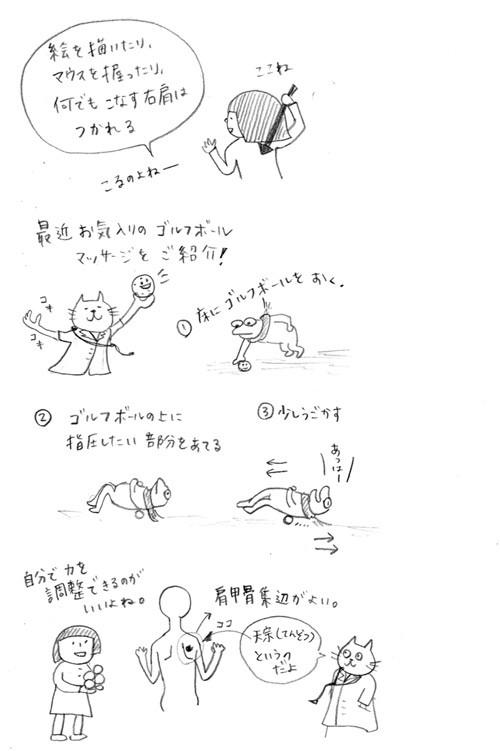 絵を描いたり、
マウスを握ったり、
何でもこなす右肩は
つかれる
ここね
こるのよねー
最近お気入りのゴルフボール
マッサージをご紹介!
コキ
コキ
① 床にゴルフボールをおく。
② ゴルフボールの上に
指圧したい部分をあてる
③ 少しうごかす
あっはー
自分で力を
調整できるのが
いいよね。
肩甲骨集辺がよい。
ココ
天宗(てんそう)
というの
だよ